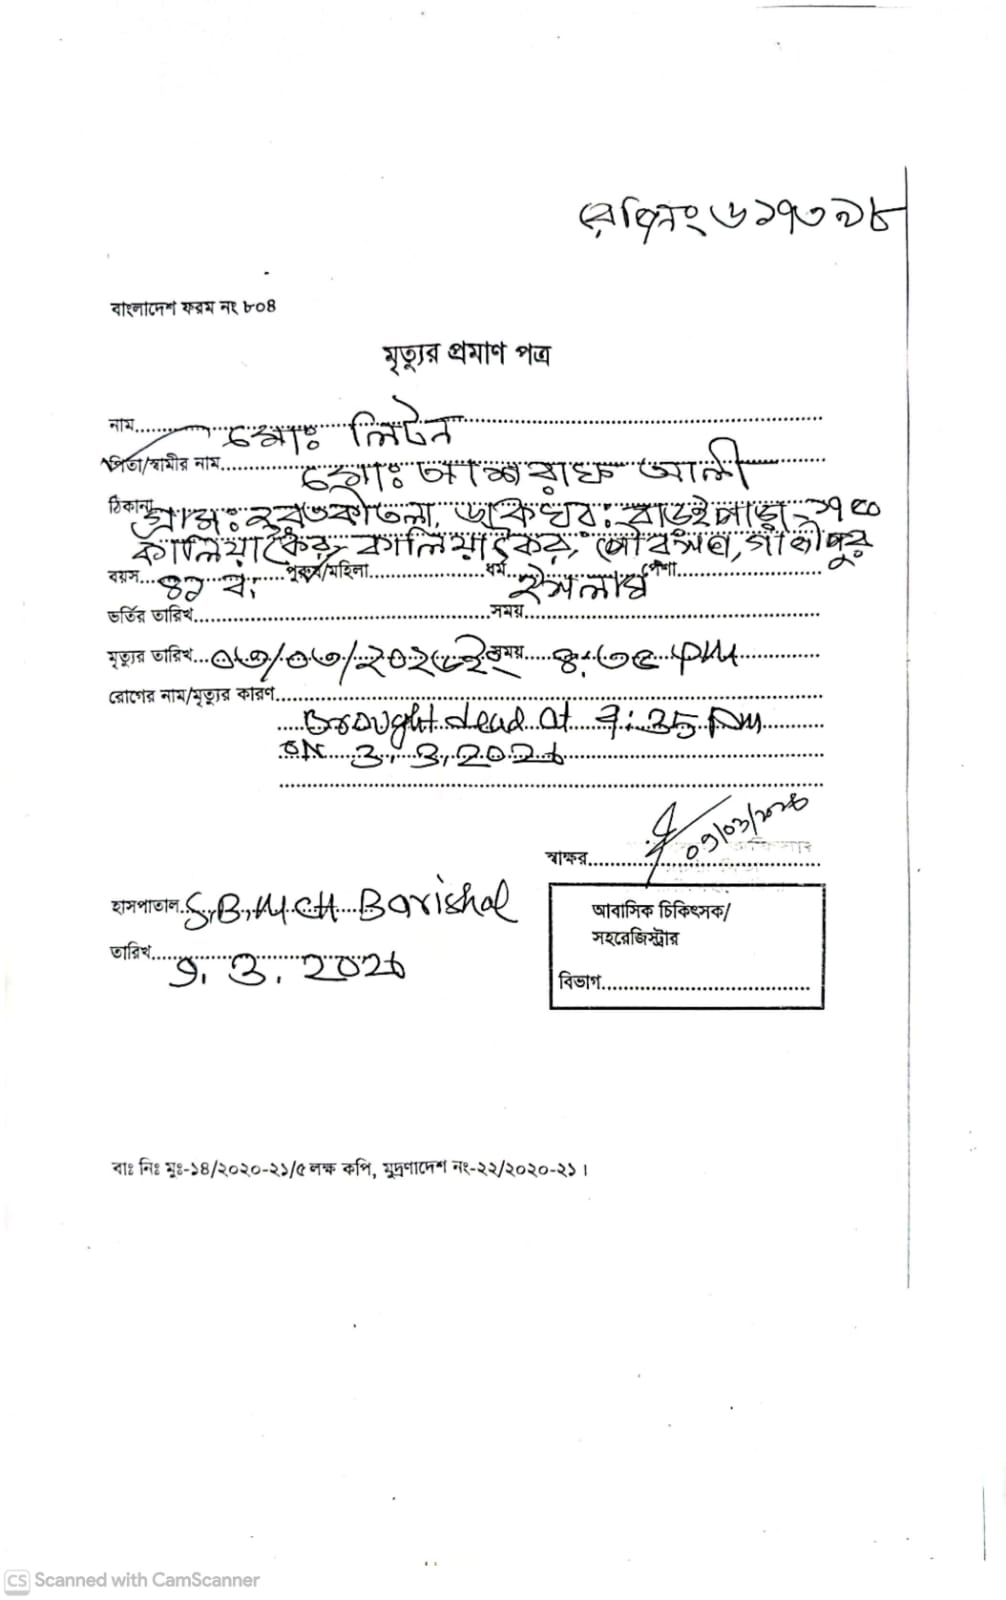 রেজিনং ৬১৭৩৯৮
বাংলাদেশ ফরম নং ৮০৪
মৃত্যুর প্রমাণ পত্র
নাম..... মোঃ লিটন
পিতা/স্বামীর নাম..... মোঃ আশরাফ আলী
ঠিকানা গ্রাম: হরতকীতলা, ডাকঘর: বাড়ইপাড়া-
কালিয়াকৈর, কালিয়াকৈর, গাজীপুর
বয়স... ৪১ ব: পুরুষ/মহিলা..... ধর্ম... ইসলাম পেশা.....
ভর্তির তারিখ..... সময়.....
মৃত্যুর তারিখ... ০৩/০৩/২০২৬ইং সময়
রোগের নাম/মৃত্যুর কারণ.....
Brought dead at 7:35 PM
ON 3.3.2026
০৭/০৩/২০২৬
স্বাক্ষর.....
হাসপাতাল. S.B.M.C.H. Barishal
আবাসিক চিকিৎসক/
সহরেজিস্ট্রার
তারিখ..... ৭.৩.2026
বিভাগ.....
বাঃ নিঃ মুঃ-১৪/২০২০-২১/৫ লক্ষ কপি, মুদ্রণাদেশ নং-২২/২০২০-২১।
CS Scanned with CamScanner